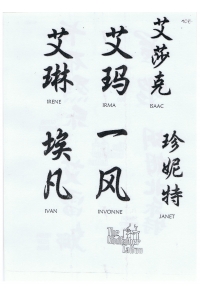 艾琳
IRENE
艾玛
IRMA
艾莎克
ISAAC
埃凡
IVAN
一风
INVONNE
珍妮特
JANET
The